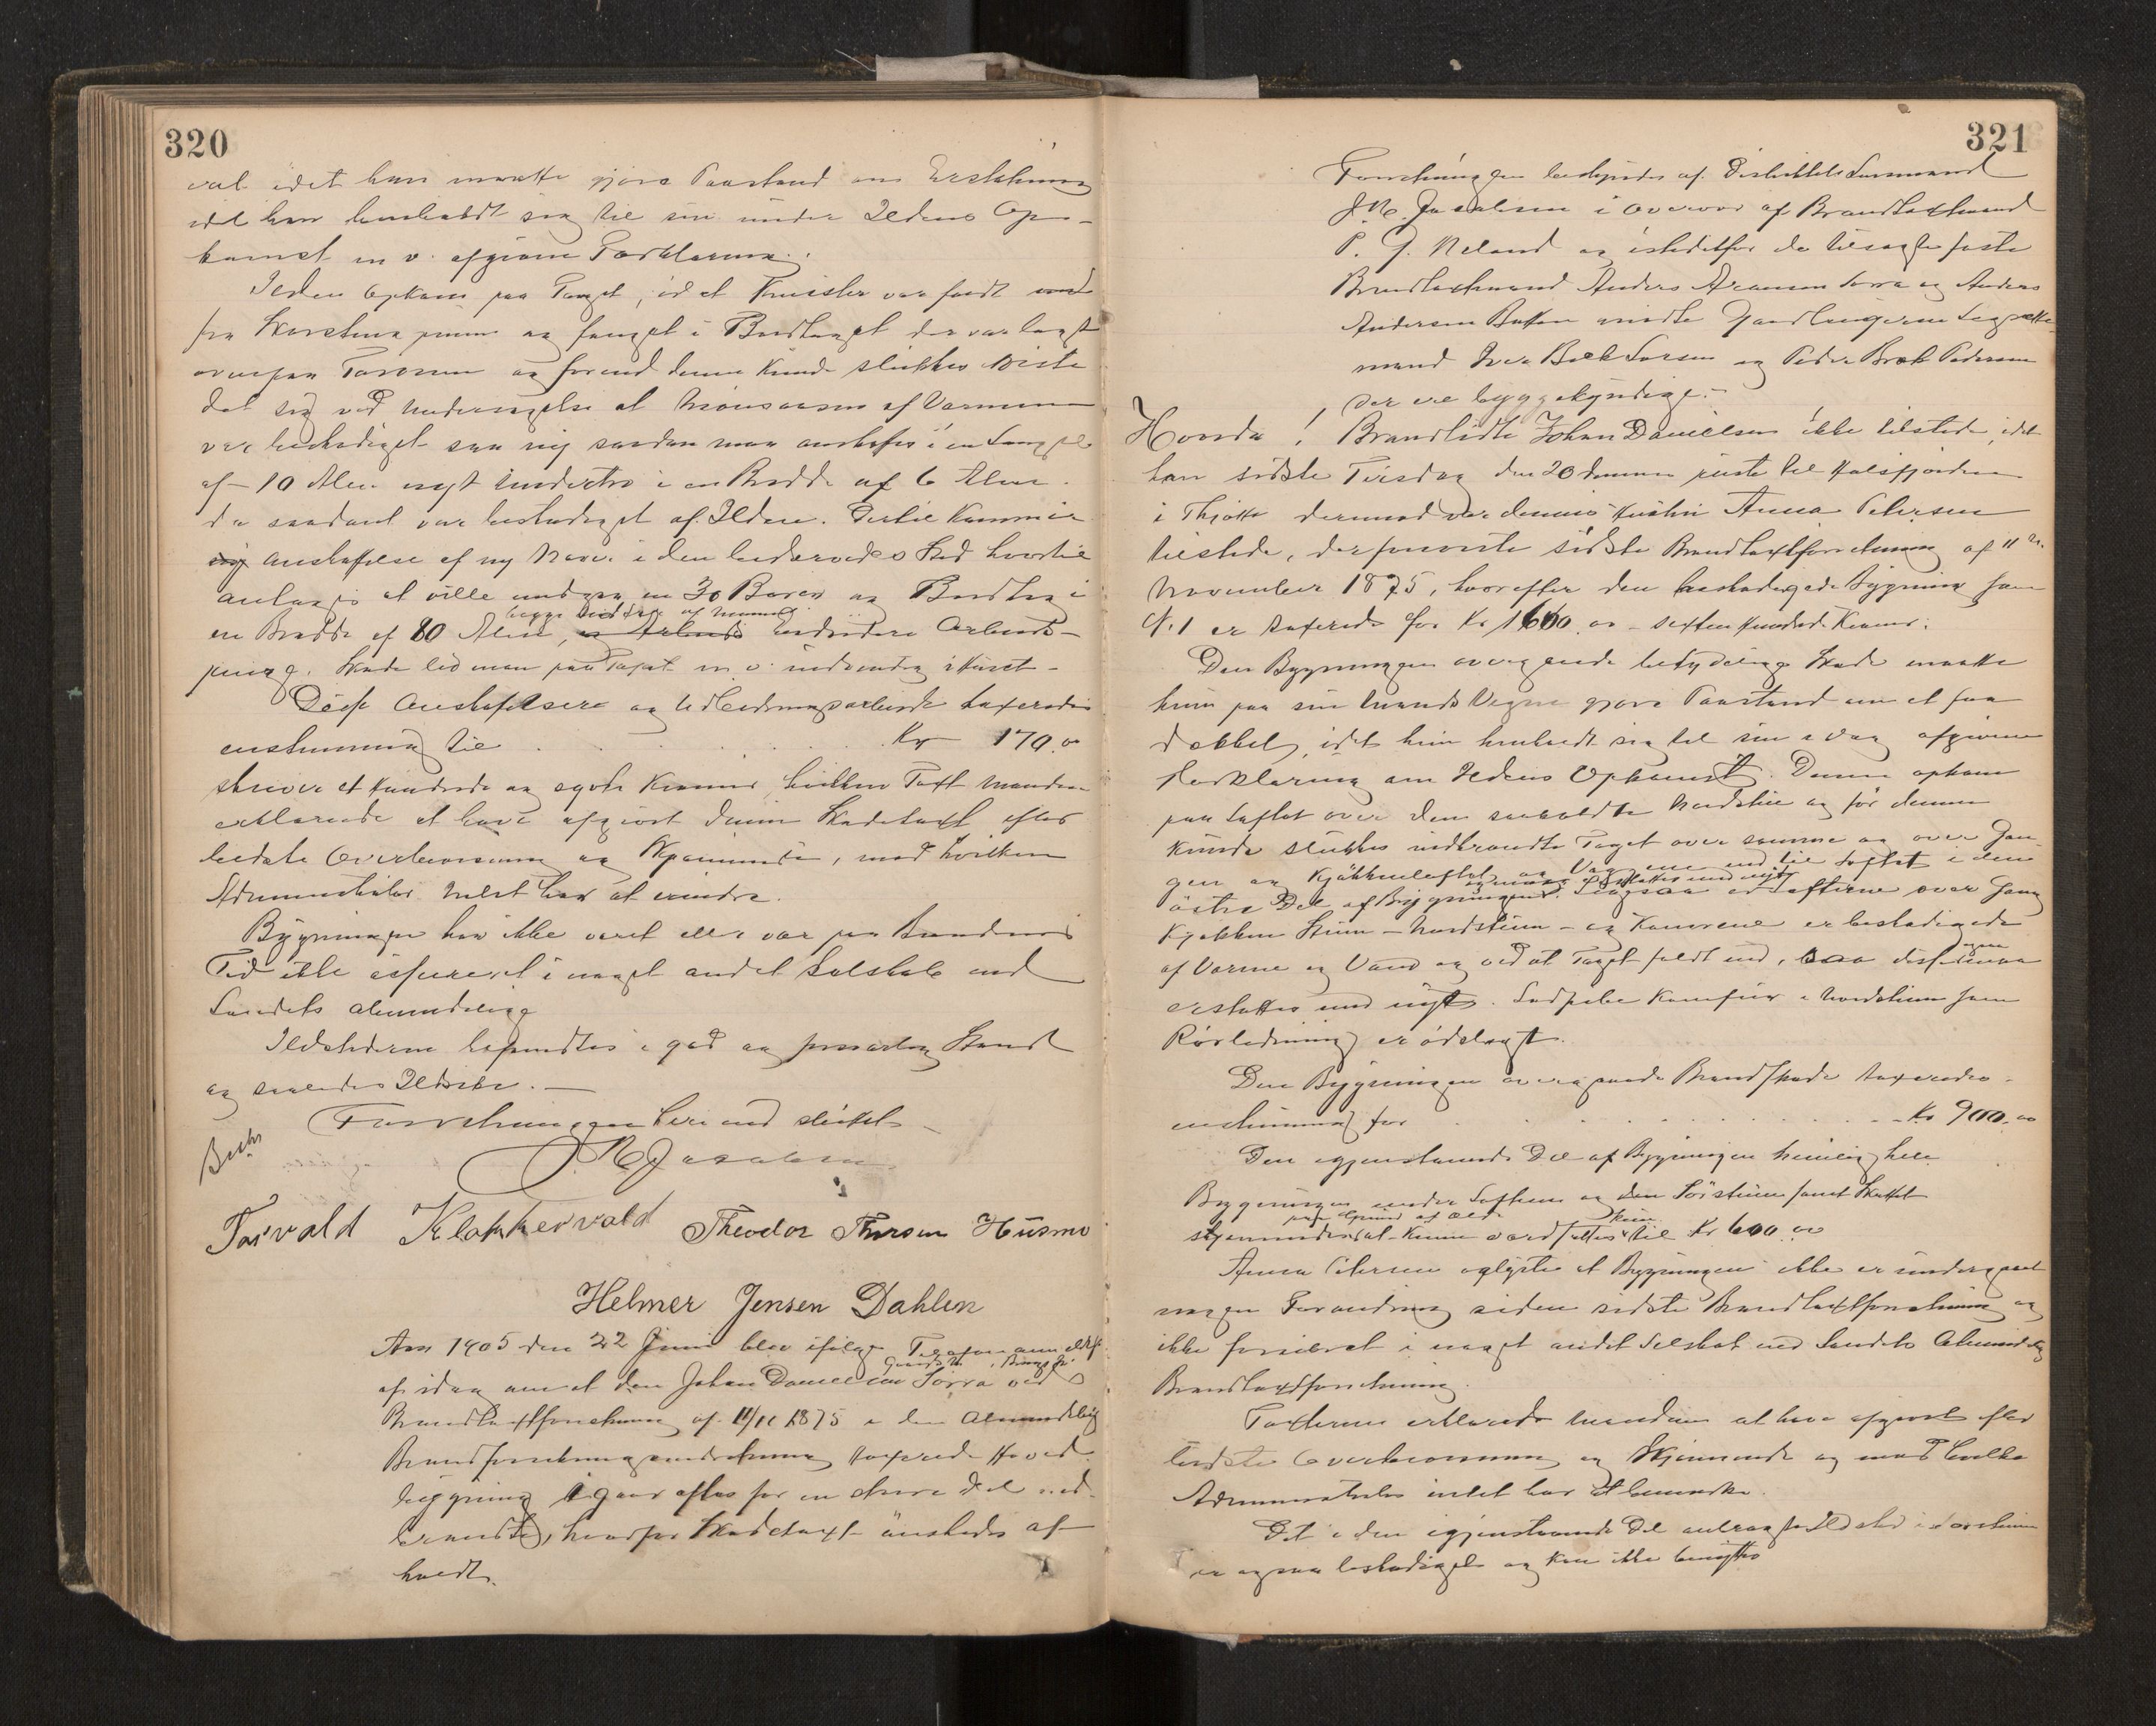 320
vel idet han maatte gjøre Paastand om Erstatning
idet han henholdt sig til sin under Ildens Op-
komst m v. afgivne Forklaring.
Ilden opkom paa Taget, idet Knister var faldt
fra Skorstens pipen og fænget i Bordtaget der var lagt
ovenpaa Torven og forend denne kunde slukkes viste
det sig ved Undersøgelse at Mønsaasen af Varmen
var beskadiget saa ny saadan maa anskaffes i en Længde
af 10 Alen nyt undertro i en Bredde af 6 Alen.
da saadant var beskadiget af Ilden. Dertil kommer
Anskaffelse af ny Næver i den bedærvedes Sted hvortil
antages at ville medgaa en 30 Bører og Bordtag i
begge Sider af Mønne
en Bredde af 80 Alen, Arbeids-
penge. Skade led man paa Taget m v. indvendig i Huset.
Disse Anskaffelser og Udbedringsarbeide taxeredes
enstemmig til . . . . . Kr 170.00
skriver et hundrede og syvti Kroner, hvilken Taxt Mændene
erklærede at have afgivet denne Skadetaxt efter
bedste Overbevisning og Skjønnende, mod hvilken
Administrator Intet har at erindre.
Bygningen har ikke været eller var paa Brandens
Tid ikke assureret i noget andet Selskab end
Landets almindelige
Ildstederne befandtes i god og forsvarlig Stand
og saaledes Ildsikre.
Forretningen hermed sluttet
J. N. Jacobsen
Torvald Klokkervald Theodor Thorsen Husmo
Helmer Jensen Dahlen
Aar 1905 den 22 Juni blev ifølge Telefonanmeldelse
af idag om at den Johan Danielsen Sørra ved
Brandtaxtforretning af 11/11 1875 i den Almindelig
Brandforsikringsindretning taxerede Hoved-
bygning igaar aftes for en større Del ned-
brændte, hvorfor Skadetaxt ønskedes af-
holdt.
321
Forretningen bestyredes af Distriktets Lensmand
J. N. Jacobsen i Overvær af Brandtaxtmand
P. J. Meland og istedetfor de tilsagte faste
Brandtaxtmænd Anders Aronsen Sørra og Anders
Andersen Batten mødte Gaardbrugerne Lagrette-
mand Iver Bæk Larsen og Peder Bræk Pedersen
der ere byggekyndige.
Hvorda! Brandlidte Johan Danielsen ikke tilstede, idet
han sidste Tirsdag den 20 dennes reiste til Halsfjorden
i Thjøtta derimod var dennes Hustru Anna Petersen
tilstede, der foreviste sidste Brandtaxtforretning af 11te
November 1875, hvorefter den beskadigede Bygning som
No. 1 er taxerede for Kr 1600.00 - sexten Hundrede Kroner.
Den Bygningen overgaaede betydelige Skade maatte
hun paa sin Mands Vegne gjøre Paastand om at faa
dækket, idet hun henholdt sig til sin i Dag afgivne
Forklaring om Ildens Opkomst. Denne opkom
paa Loftet over den saakaldte Nordstue og før denne
kunde slukkes nedbrændte Taget over samme og over Gan-
gen og Kjøkkenloftet og Væggene ned til Loftet i den
østre Del af Bygningen. Ligesaa er Lofterne over Gang
Kjøkken Stuen - Nordstuen - og Kamrene er beskadigede
af Varme og Vand og ved at Taget faldt ned, saa disse maa
erstattes med nyt. Kamfur i Nordstuen samt
Rørledning er ødelagt.
Den Bygningen overgaaede Brandskade taxeredes
enstemmig for . . . . . . Kr 900.00
Den igjenstaaende Del af Bygningen nemlig hele
Bygningen under Loftene og den Sørstuen samt Skottet
paa Grund af Ælde kun
skjønnedes at kunne værdsættes til Kr 600.00
Anna Petersen oplyste at Bygningen ikke er undergaaet
nogen Forandring siden sidste Brandtaxtforretning og
ikke forsikret i noget andet Selskab end Landets Almindelig
Brandtaxtforretning.
Taxterne erklærede Mændene at have afgivet efter
bedste Overbevisning og Skjønnende og mod hvilke
Administrator intet har at bemærke.
Det i den igjenstaaende Del anbragte Ildsted i Sørstuen
er ogsaa beskadiget og kan ikke benyttes